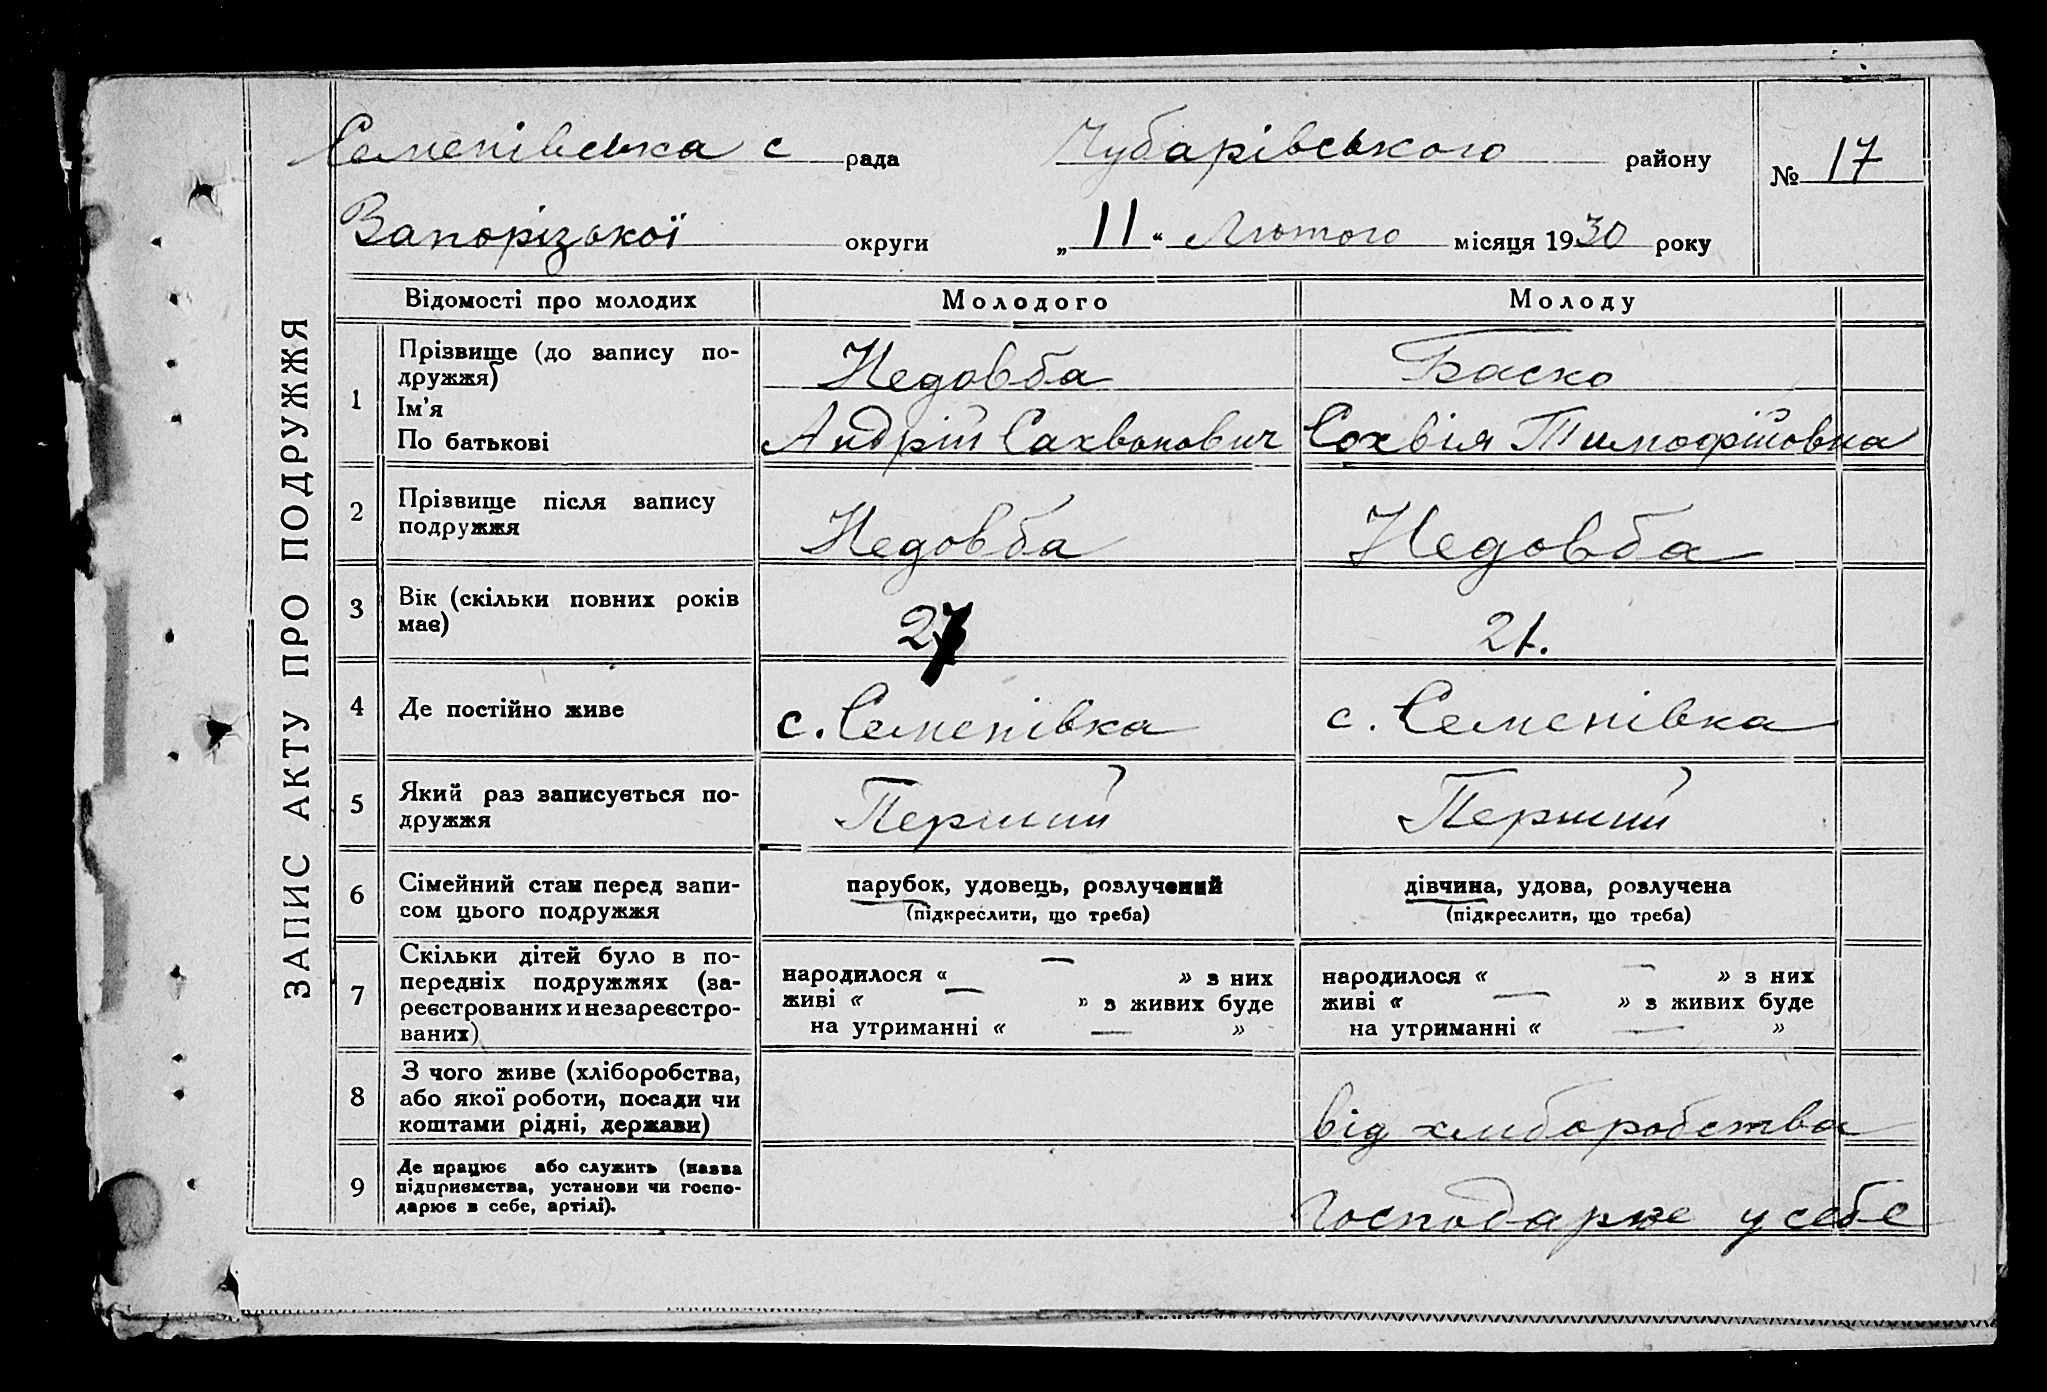 ЗАПИС АКТУ ПРО ПОДРУЖЖЯ
Семенівська с рада Чубарівського району № 17
Запорізької округи „11“ Лютого місяця 1930 року
Відомості про молодих Молодого Молоду
1 Прізвище (до запису по-
дружжя) Недовба Баско
Ім'я
По батькові Андрій Сахвонович Сохвія Тимофійовна
2 Прізвище після запису
подружжя Недовба Недовба
3 Вік (скільки повних років
має) 27 21.
4 Де постійно живе с. Семенівка с. Семенівка
5 Який раз записується по-
дружжя Перший Перший
6 Сімейний стан перед запи-
сом цього подружжя
парубок, удовець, розлучений дівчина, удова, розлучена
(підкреслити, що треба) (підкреслити, що треба)
7 Скільки дітей було в по-
передніх подружжях (за-
реєстрованих и незареєстро-
ваних)
народилося « — » з них народилося « — » з них
живі « — » з живих буде живі « — » з живих буде
на утриманні « — » на утриманні « — »
8 З чого живе (хліборобства,
або якої роботи, посади чи
коштами рідні, держави) від хліборобства
9 Де працює або служить (назва
підприємства, установи чи госпо-
дарює в себе, артілі). Господарює у себе